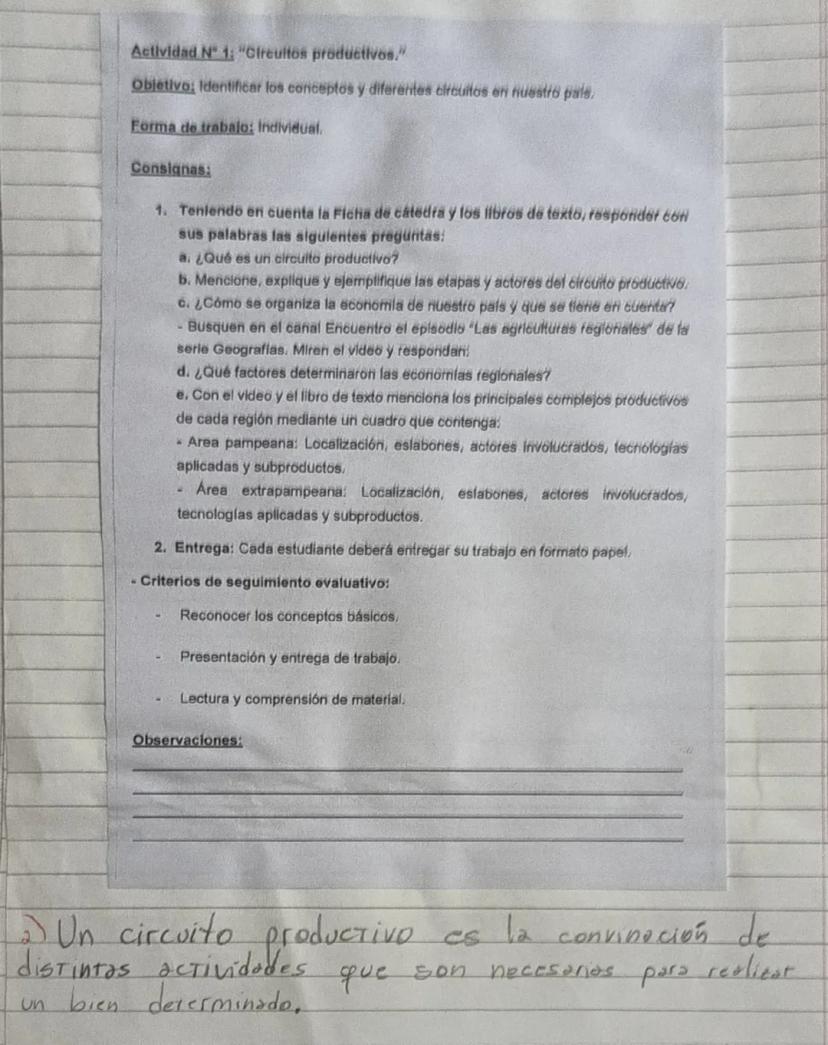 Actividad N° 1: "Circuitos productivos."
Objetivo: Identificar los conceptos y diferentes circuitos en nuestro país.
Forma de trabajo: Individual.
Consignas:
1. Teniendo en cuenta la Ficha de cátedra y los libros de texto, responder con
sus palabras las siguientes preguntas:
a. ¿Qué es un circuito productivo?
b. Mencione, explique y ejemplifique las etapas y actores del circuito productivo.
c. ¿Cómo se organiza la economía de nuestro país y que se tiene en cuenta?
- Busquen en el canal Encuentro el episodio "Las agriculturas regionales" de la
serie Geografías. Miren el video y respondan:
d. ¿Qué factores determinaron las economías regionales?
e. Con el video y el libro de texto menciona los principales complejos productivos
de cada región mediante un cuadro que contenga:
- Área pampeana: Localización, eslabones, actores involucrados, tecnologías
aplicadas y subproductos.
- Área extrapampeana: Localización, eslabones, actores involucrados,
tecnologías aplicadas y subproductos.
2. Entrega: Cada estudiante deberá entregar su trabajo en formato papel.
- Criterios de seguimiento evaluativo:
- Reconocer los conceptos básicos.
- Presentación y entrega de trabajo.
- Lectura y comprensión de material.
Observaciones:
a) Un circuito productivo es la convinación de
distintas actividades que son necesarias para realizar
un bien determinado.